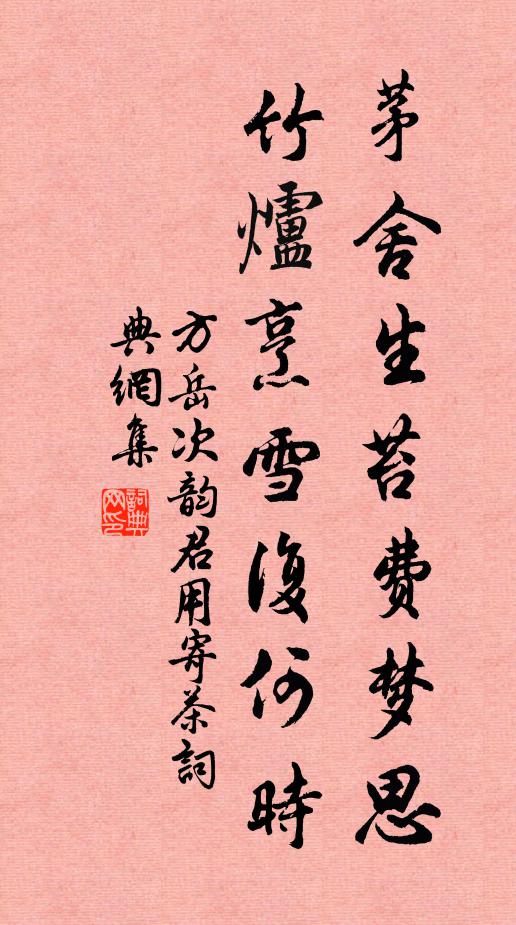 茅舍生苔费梦思
竹爐烹雪復何時
方岳次韵君用寄茶詞
典網集
詞典网印